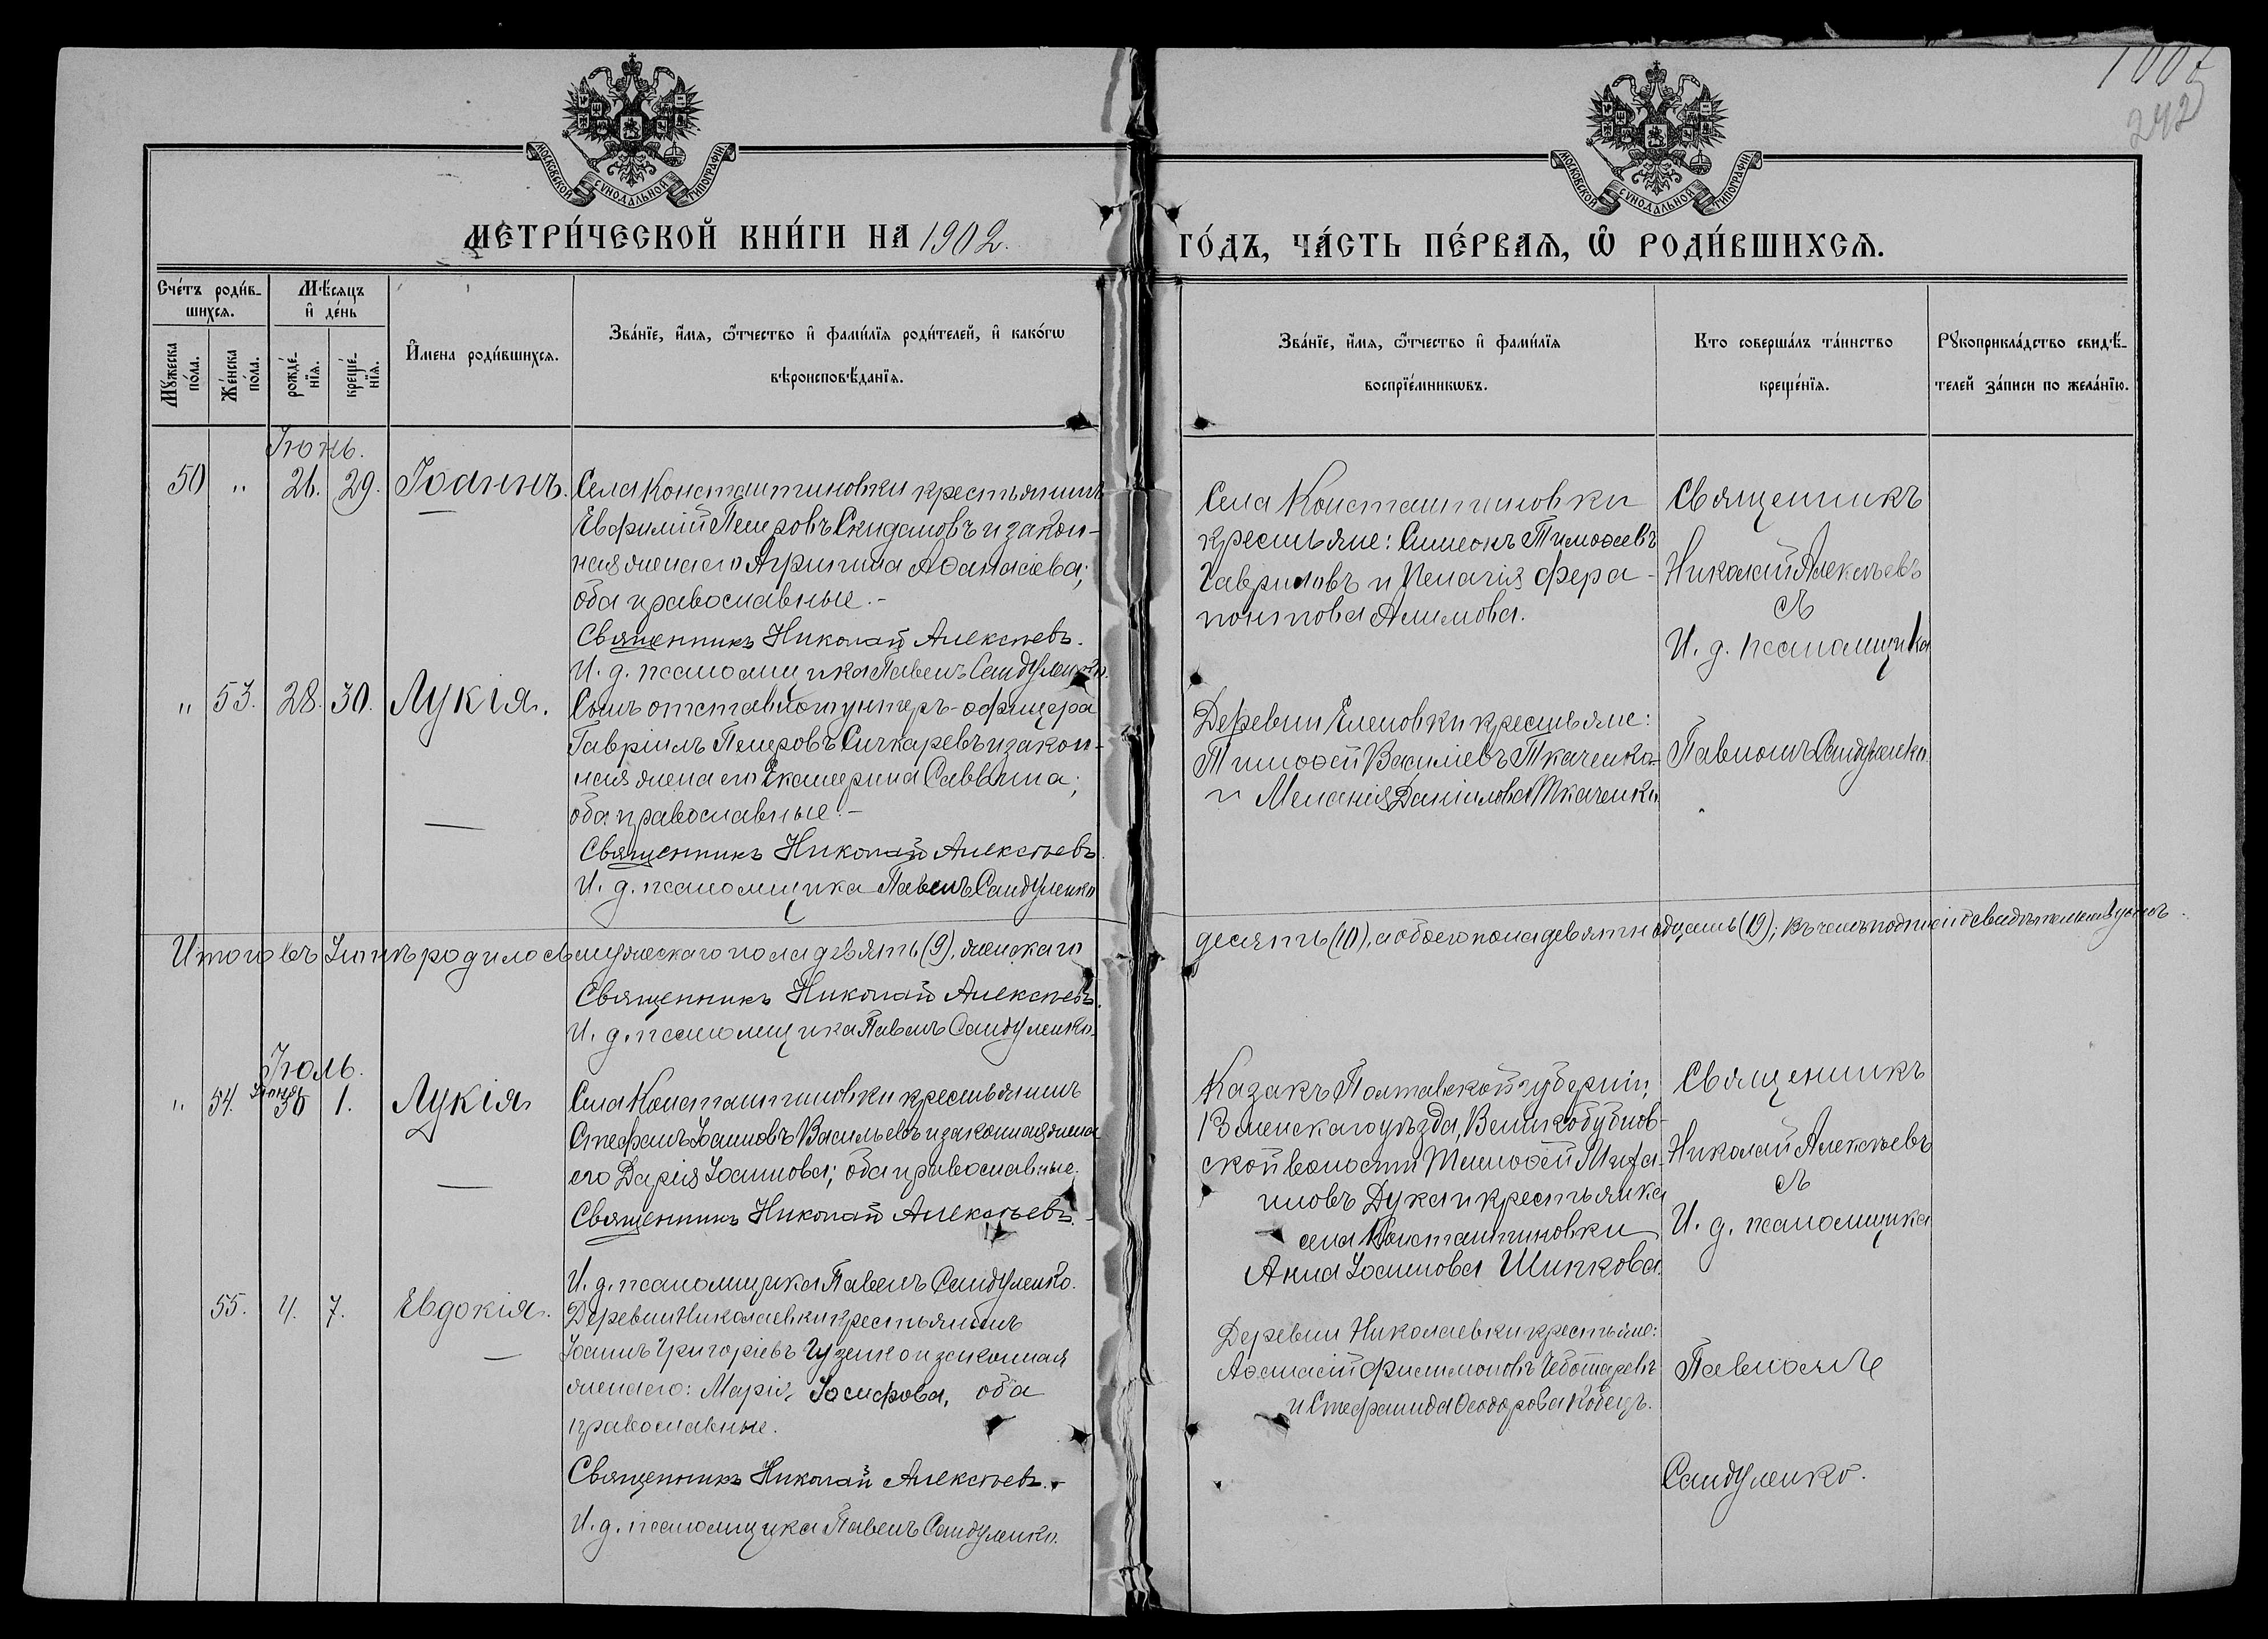 1007
242
МОСКОВСКОЙ СУНОДАЛЬНОЙ ТИПОГРАФІИ
МОСКОВСКОЙ СУНОДАЛЬНОЙ ТИПОГРАФІИ
МЕТРИ́ЧЕСКОЙ КНИ́ГИ НА 1902.
ГО́ДЪ, ЧА́СТЬ ПЕ́РВАѦ, Ѡ҆ РОДИ́ВШИХСѦ.
Сче́тъ роди́в-
шихсѧ.
Мꙋ́жеска по́ла.
Же́нска по́ла.
Мѣ́сѧцъ
и҆ де́нь
рожде́-нїѧ.
креще́-нїѧ.
И҆мена роди́вшихсѧ.
Зва́нїе, и҆́мѧ, ѻ҆́тчество и҆ фами́лїѧ роди́телей, и҆ како́гѡ
вѣроисповѣ́данїѧ.
Зва́нїе, и҆́мѧ, ѻ҆́тчество и҆ фами́лїѧ
воспрїе́мникѡвъ.
Кто соверша́лъ та́инство
креще́нїѧ.
Рꙋкоприкла́дство свидѣ́-
телей за́писи по жела́нїю.
Іюнь.
50 " 26. 29. Іоаннъ.
Села Константиновки крестьянинъ
Евфимій Петровъ Скидановъ и закон-
ная жена его Агрипина Аѳанасіева;
оба православные.-
Священникъ Николай Алексѣевъ.
И. д. псаломщика Павелъ Сандуленко.
Села Константиновки
крестьяне: Симеонъ Тимоѳеевъ
Гавриловъ и Пелагія Фера-
понтова Алимова.
Священникъ
Николай Алексѣевъ
съ
И. д. псаломщика
" 53. 28. 30. Лукія.
Сынъ отставного унтеръ-офицера
Гавріилъ Петровъ Сичкаревъ и закон-
ная жена его Екатерина Саввина;
оба православные.-
Священникъ Николай Алексѣевъ.
И. д. псаломщика Павелъ Сандуленко
Деревни Еленовки крестьяне:
Тимоѳей Василіевъ Ткаченко
и Меланія Даніилова Ткаченко.
Павломъ Сандуленко.
Итого въ Іюнѣ родилось мужескаго пола девять (9), женскаго
десять (10), а обоего пола девятнадцать (19); въ чемъ подписью свидѣтельствуемъ.
Священникъ Николай Алексѣевъ.
И. д. псаломщика Павелъ Сандуленко.
Іюль.
" 54. Іюня 30 1. Лукія
Села Константиновки крестьянинъ
Стефанъ Іоанновъ Васильевъ и законная жена
его Дарія Іоаннова; оба православные.
Священникъ Николай Алексѣевъ.-
И. д. псаломщика Павелъ Сандуленко.
Казакъ Полтавской губерніи,
Зменскаго уѣзда, Великобубнов-
ской волости Тимоѳей Миха-
иловъ Дука и крестьянка
села Константиновки
Анна Іоаннова Шинкова.
Священникъ
Николай Алексѣевъ
съ
И. д. псаломщика
55. 4. 7. Евдокія.
Деревни Николаевки крестьянинъ
Іоаннъ Григоріевъ Гузенко и законная
жена его: Марія Іосифова, оба
православные.
Священникъ Николай Алексѣевъ.-
И. д. псаломщика Павелъ Сандуленко.
Деревни Николаевки крестьяне:
Аѳанасій Филимоновъ Чеботаревъ
и Стефанида Ѳеодорова
Павломъ
Сандуленко.